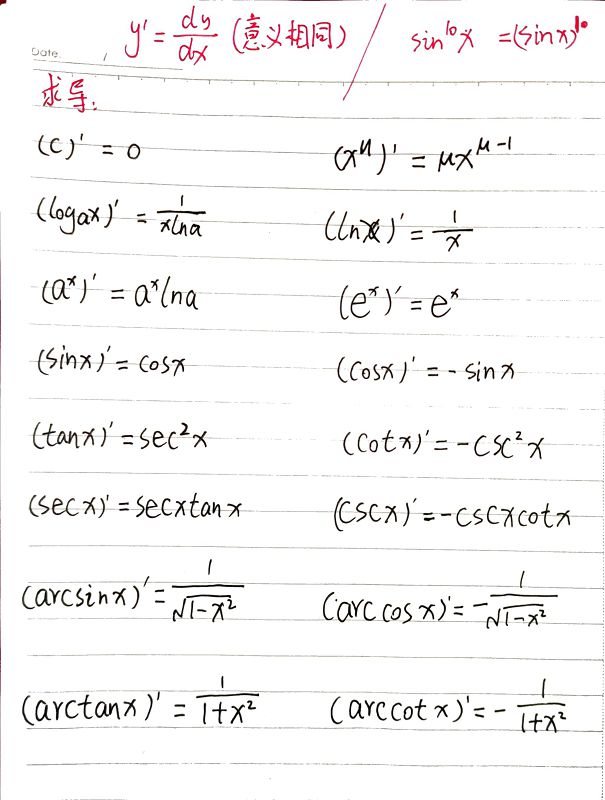 y' = dy/dx (意义相同) / sin¹⁰x = (sinx)¹⁰
Date.
求导:
(C)' = 0 (x^μ)' = μx^(μ-1)
(logax)' = 1/(xlna) (lnx)' = 1/x
(aˣ)' = aˣlna (eˣ)' = eˣ
(sinx)' = cosx (cosx)' = -sinx
(tanx)' = sec²x (cotx)' = -csc²x
(secx)' = secxtanx (cscx)' = -cscxcotx
(arcsinx)' = 1/√(1-x²) (arccosx)' = -1/√(1-x²)
(arctanx)' = 1/(1+x²) (arccotx)' = -1/(1+x²)